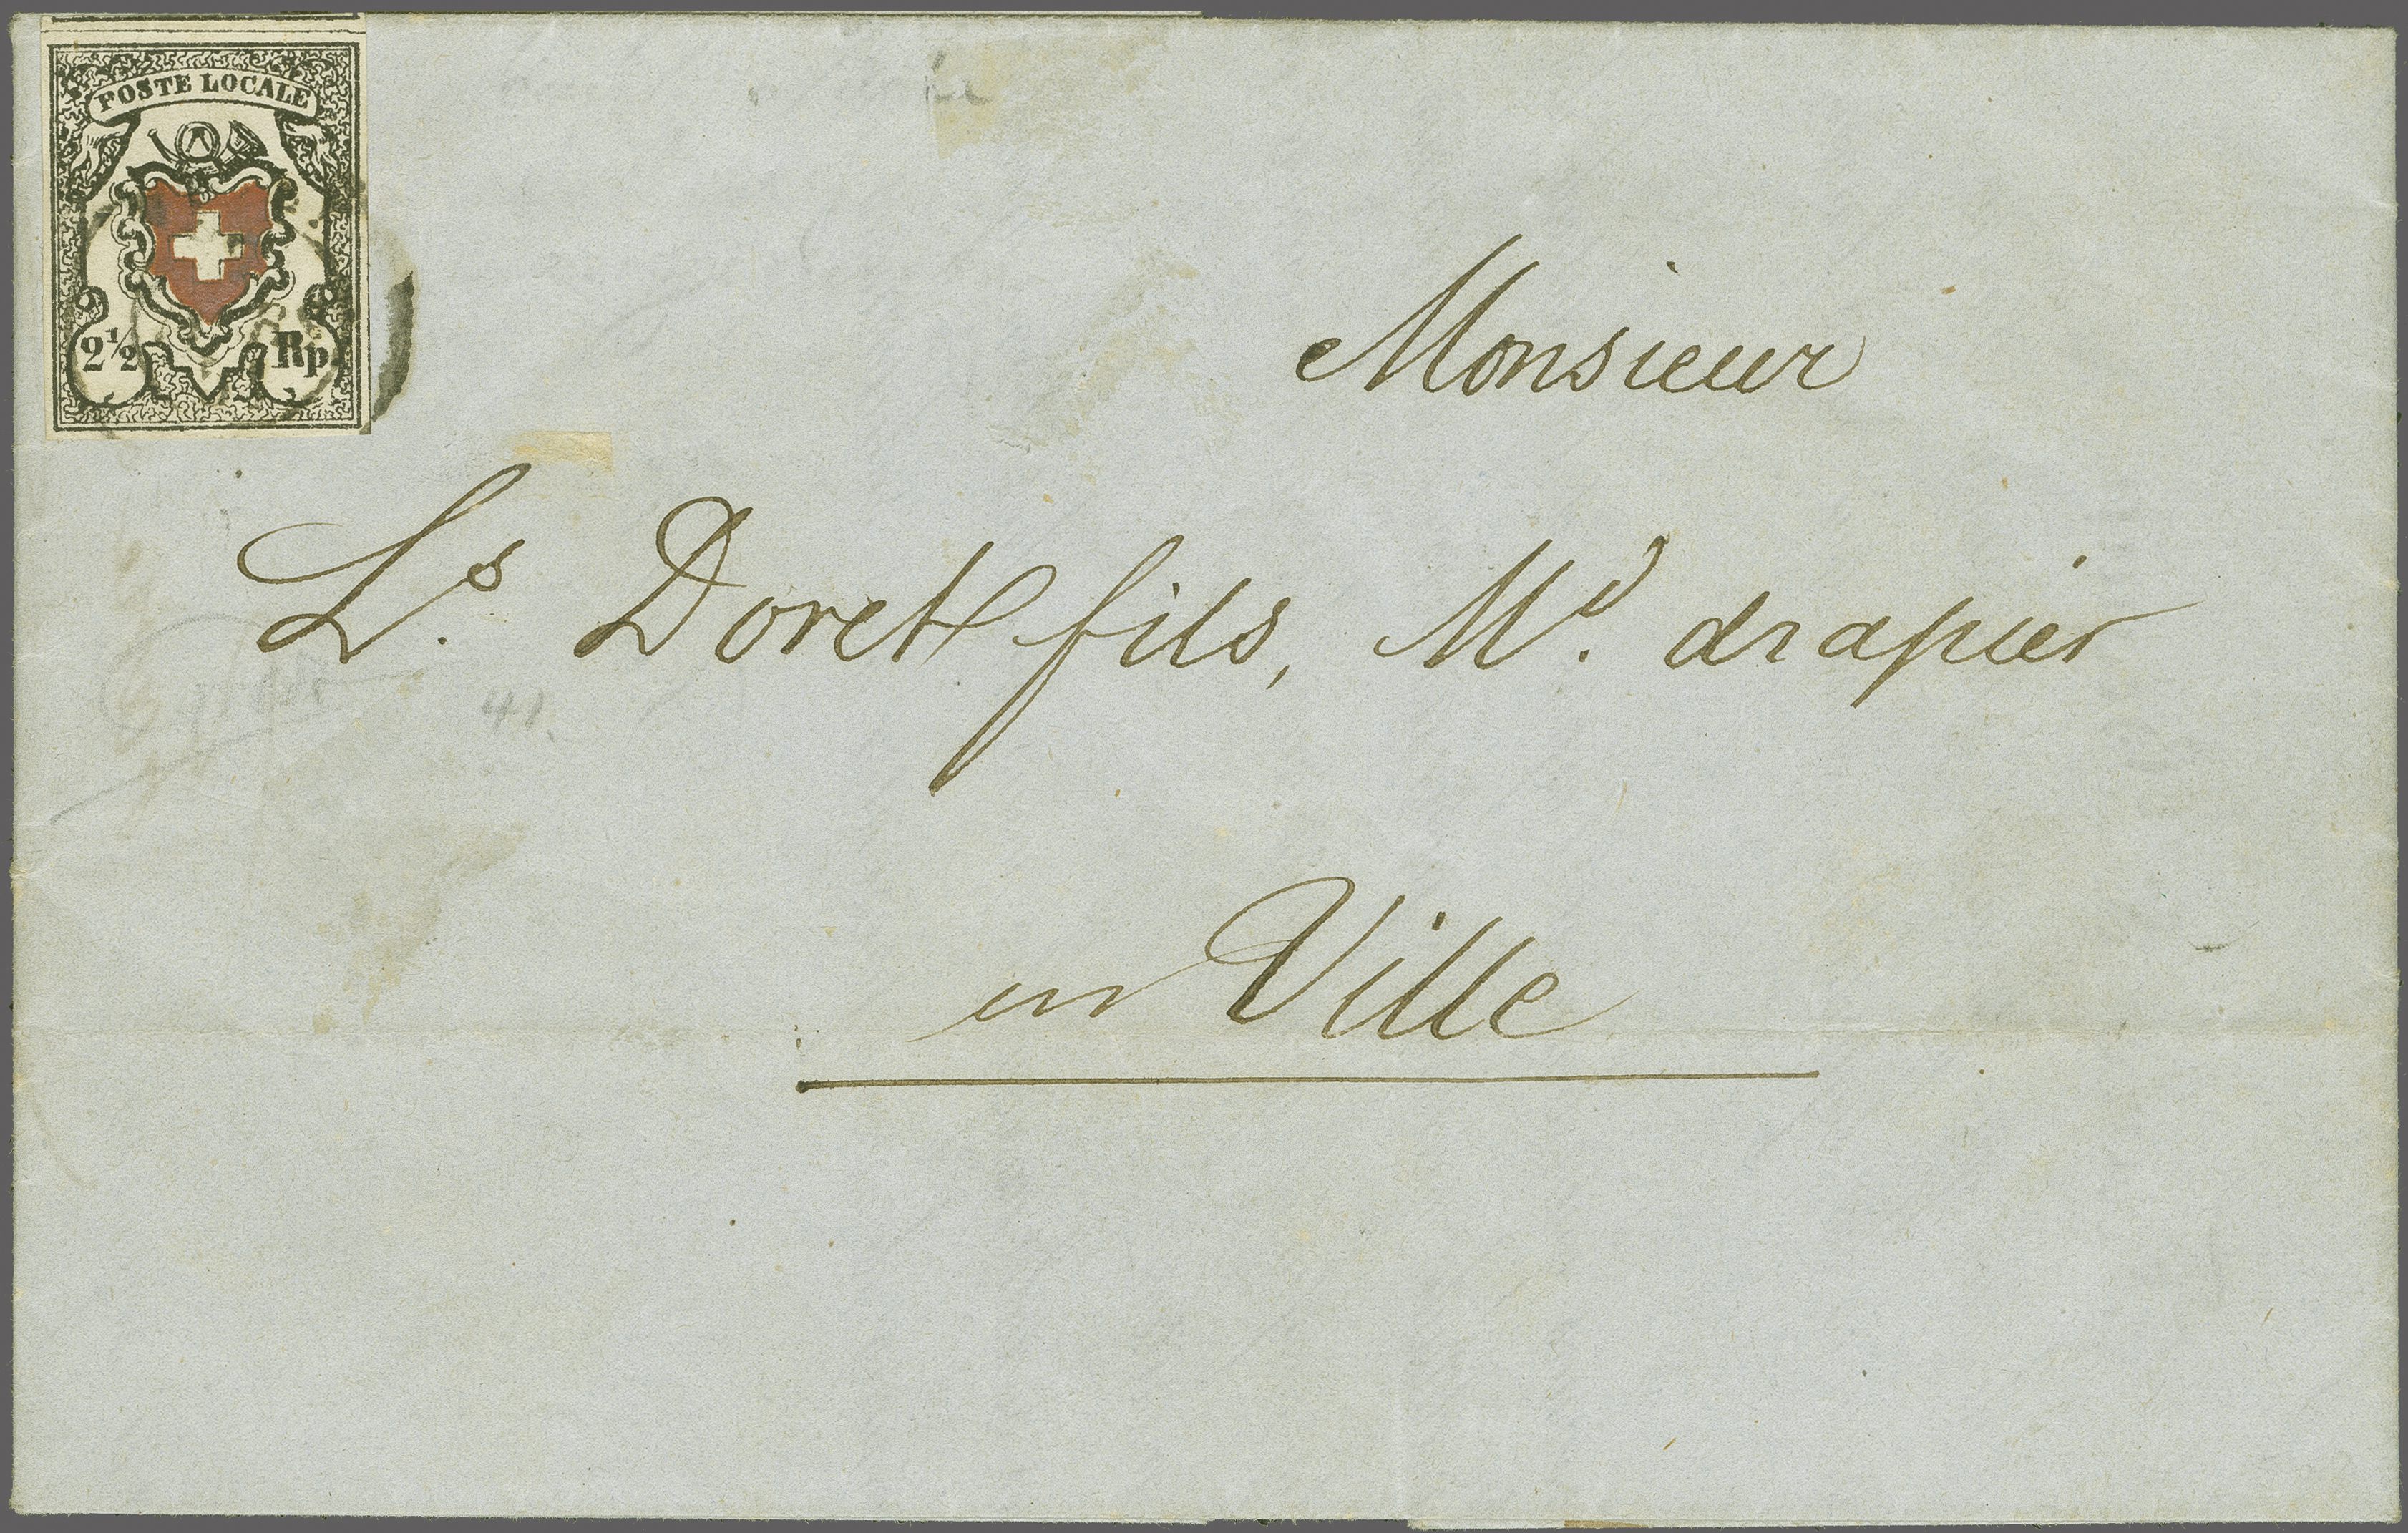 POSTE LOCALE
2 1/2 Rp.
Monsieur
L.s Doret fils, M.d drapier
en Ville